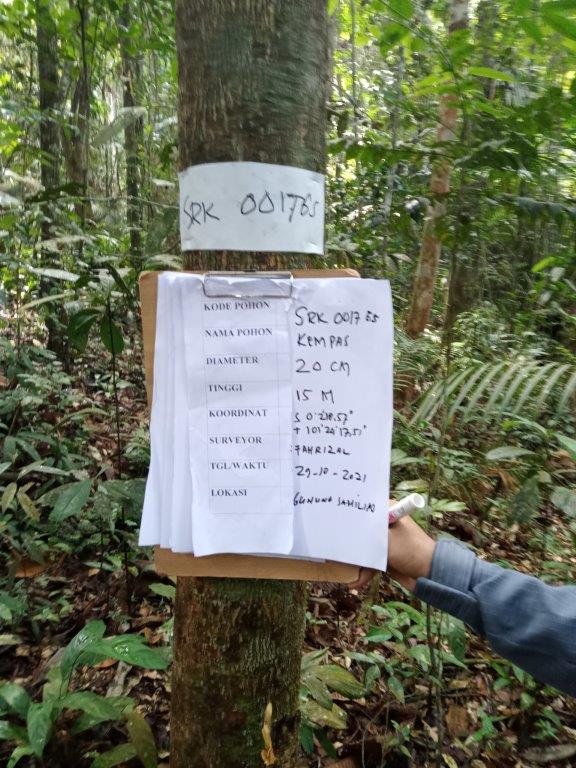 SRK 001765
KODE POHON SRK 001765
NAMA POHON KEMPAS
DIAMETER 20 CM
TINGGI 15 M
KOORDINAT
SURVEYOR : FAHRIZAL
TGL/WAKTU 29-10-2021
LOKASI GUNUNG SAHILIN